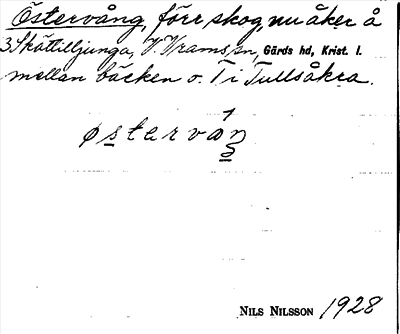 Östervång, förr skog, nu åker å
3 Skättilljunga, V. Vrams sn, Gärds hd, Krist. l.
mellan bäcken o. Ti Tullsåkra.
østervåŋ
NILS NILSSON 1928